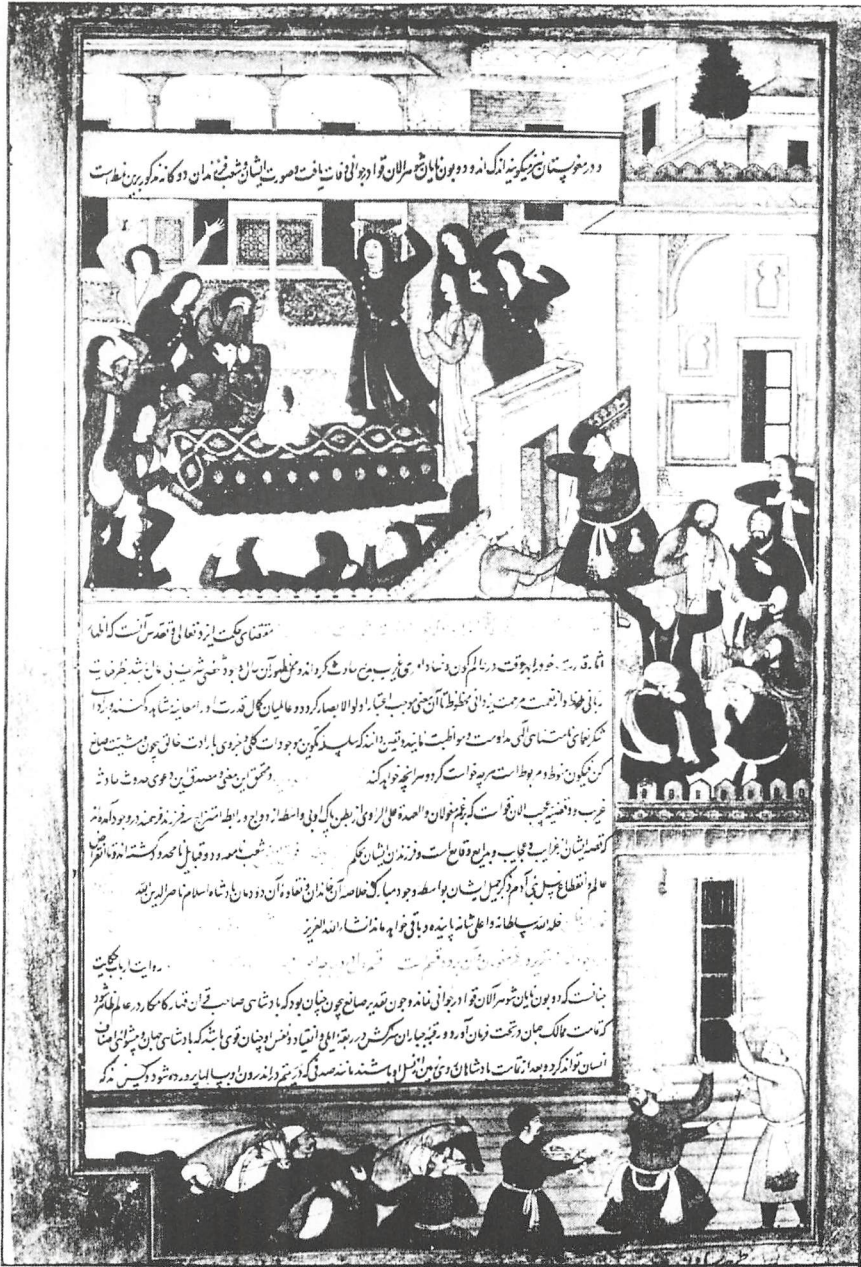 و در مغولستان نیز میگویند اندک اند و دوبون بایان شوهر الان قوا در جوانی وفات یافت و صورت ایشان و شعب فرزندان دوگانه مذکور برین نمط است
مقتضای حکمت ایزد تعالی و تقدس آنست که اظهار
آثار قدرت خود را بهر وقت در عالم کون و فساد امری غریب بدیع حادث گرداند و محل ظهور آن حال وجود شخصی شریف بی همال باشد بنظر عنایت
ربانی ملحوظ و از نعمت مرحمت یزدانی محظوظ تا آن معنی موجب اعتبار اولو الابصار گردد و عالمیان کمال قدرت او را معاینه مشاهده کنند و بر ادای
شکر نعمای نامتناهی الهی مداومت و مواظبت نمایند و یقین دانند که سلسله تکوین موجودات کلی و جزوی بارادت خالق بیچون و مشیت صانع
کن فیکون منوط و مربوط است هرچه خواست کرد و هرانچه خواهد کند و محقق این معنی و مصدق این دعوی حدوث حادثه
غریب و قضیه عجیب الان قواست که بزعم مغولان و العهدة علی الراوی از بطن پاک او بی واسطه ازدواج و رابطه امتزاج سه فرزند فرهمند در وجود آمده اند
که قصه ایشان غرایب و عجایب و بدایع وقایع است و فرزندان ایشان بحکم شعب نامعدود و قبایل نامحدود گشته اند و تا انقراض
عالم و انقطاع نسل بنی آدم ذکر جمیل ایشان بواسطه وجود مبارک خلاصه آن خاندان و نقاوه آن دودمان پادشاه اسلام ناصر الدین الله
خلد الله سلطانه و اعلی شانه پاینده و باقی خواهد ماند انشاء الله العزیز
روایت ارباب حکایت
چنانست که دوبون بایان شوهر آلان قوا در جوانی نماند و چون تقدیر صانع بیچون چنان بود که پادشاهی صاحب قران قضا کامکار در عالم ظاهر شود
که تمامت ممالک جهان در تحت فرمان آورد و رقبه جباران سرکش در ربقه ایلی و انقیاد و نفس او چنان قوی باشد که پادشاهی جهان و پیشوائی اصناف
انسان تواند کرد و بعد از تمامت پادشاهان روی زمین از نسل او باشند مانند صدفی که در یتیم در اندرون او بسالها پرورده شود و کیس نه که